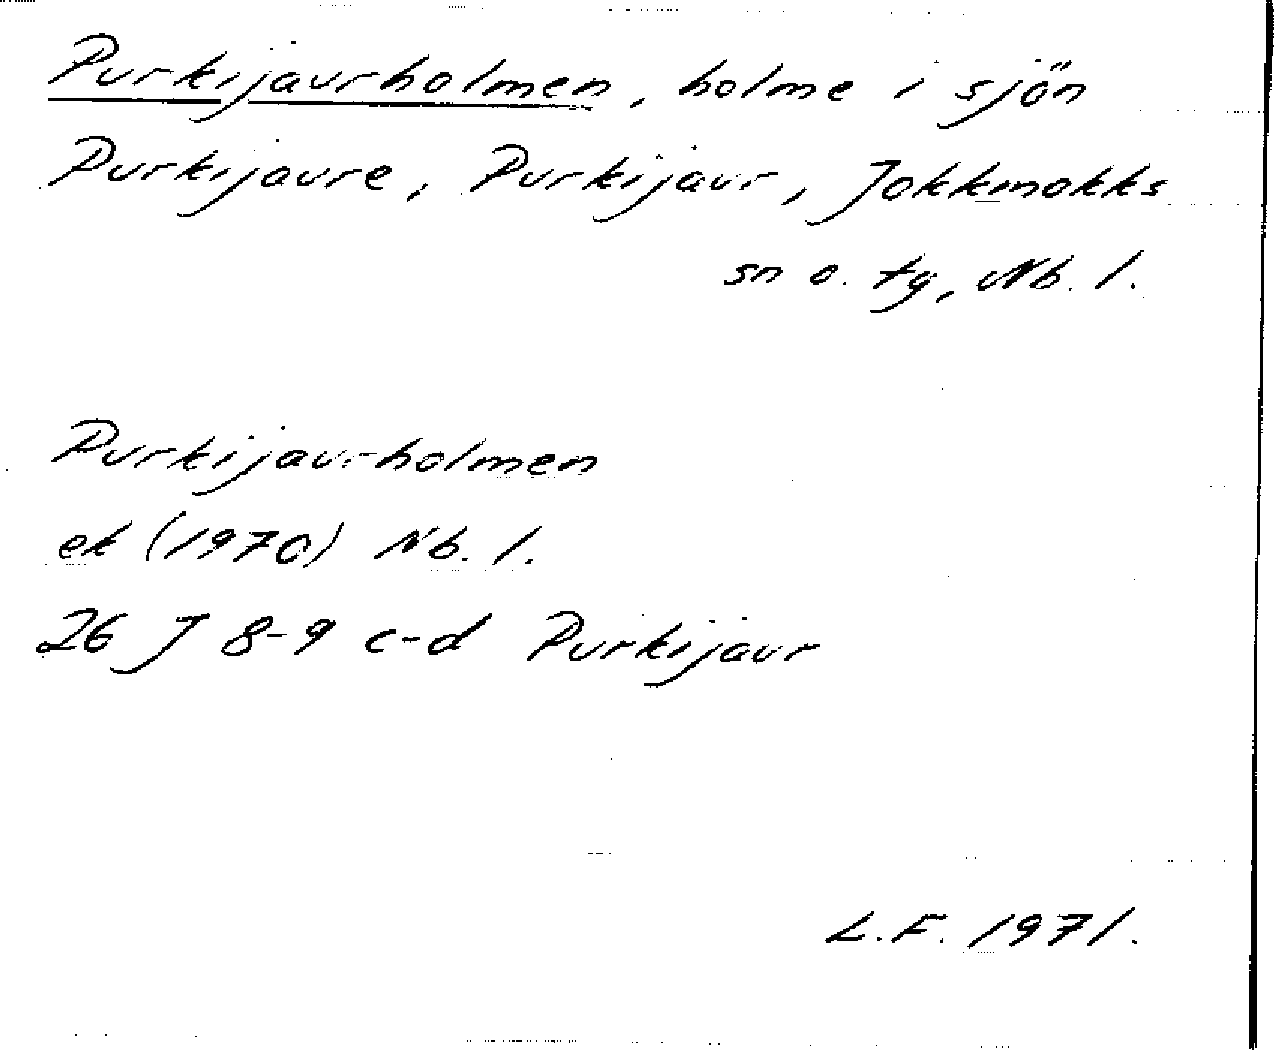 Purkijaurholmen, holme i sjön
Purkijaure, Purkijaur, Jokkmokks
sn o. tg, Nb. l.
Purkijaurholmen
ek (1970) Nb. l.
26 J 8-9 c-d Purkijaur
L.F. 1971.